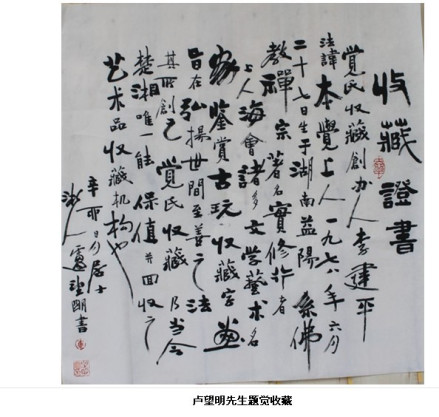 收藏證書
覺氏收藏創办人李建平
法諱本覺上人一九七八年六月
二十七日生于湖南益陽系佛
教禪宗著名實修行者
上人海會諸多文学藝术名
家鉴赏古玩收藏字画
旨在弘揚世間至善之法
其所創之覺氏收藏乃当今
楚湘唯一能保值并回收之
艺术品收藏机构也
辛卯
盧望明書
卢望明先生题觉收藏